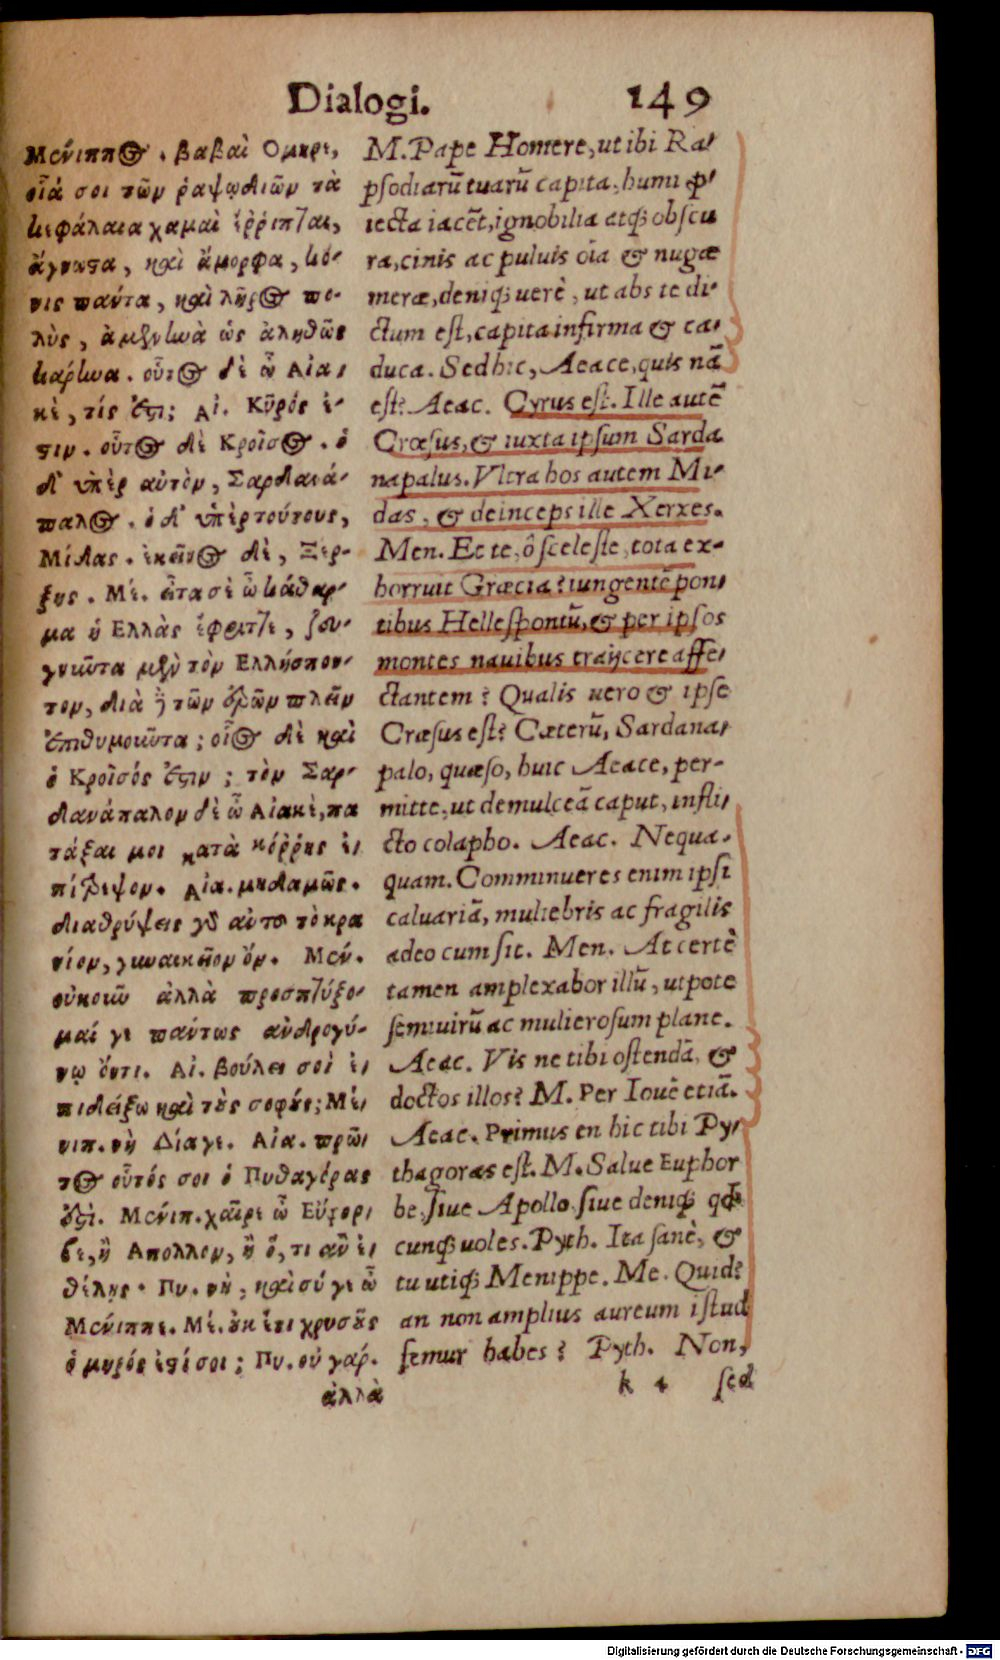 Dialogi. 149
Μένιππος. βαβαὶ Ομηρε,
οἷά σοι τῶν ῥαψῳδιῶν τὰ
κεφάλαια χαμαὶ ἔῤῥιπται,
ἄγνωστα, καὶ ἄμορφα, κό-
νις πάντα, καὶ λῆρος πο-
λὺς, ἀμενηνὰ ὡς ἀληθῶς
κάρηνα. οὗτος δὲ ὦ Αἰα-
κὲ, τίς ἐστι; Αἰ. Κῦρός ἐ-
στιν. οὗτος δὲ Κροῖσος. ὁ
δ' ὑπὲρ αὐτὸν, Σαρδανά-
παλος. ὁ δ' ὑπὲρ τούτους,
Μίδας. ἐκεῖνος δὲ, Ξέρ-
ξης. Μέ. εἶτα σὲ ὦ κάθαρ-
μα ἡ Ελλὰς ἔφριττε, ζευ-
γνῦντα μὲν τὸν Ελλήσπον-
τον, διὰ δὲ τῶν ὀρῶν πλεῖν
ἐπιθυμοῦντα; οἷος δὲ καὶ
ὁ Κροῖσός ἐστιν; τὸν Σαρ-
δανάπαλον δὲ ὦ Αἰακὲ, πα
τάξαι μοι κατὰ κόῤῥης ἐ-
πίτρεψον. Αἰα. μηδαμῶς.
διαθρύψεις γὰρ αὐτοῦ τὸ κρα
νίον, γυναικεῖον ὄν. Μέν.
οὐκοῦν ἀλλὰ προσπτύξο-
μαί γε πάντως ἀνδρογύ-
νῳ ὄντι. Αἰ. βούλει σοὶ ἐ-
πιδείξω καὶ τοὺς σοφούς; Μέ-
νιπ. νὴ Δία γε. Αἰα. πρῶ-
τος οὗτός σοι ὁ Πυθαγόρας
ἐστί. Μένιπ. χαῖρε ὦ Εὔφορ-
βε, ἢ Απολλον, ἢ ὅ, τι ἂν ἐ-
θέλης. Πυ. νὴ, καὶ σύ γε ὦ
Μένιππε. Μέ. οὐκ ἔτι χρυσοῦς
ὁ μηρός ἐστί σοι; Πυ. οὐ γάρ.
ἀλλὰ
M. Pape Homere, ut ibi Ra-
psodiarũ tuarũ capita, humi p-
iecta iacẽt, ignobilia atq; obscu
ra, cinis ac puluis oĩa & nugæ
meræ, deniq; uerè, ut abs te di-
ctum est, capita infirma & ca-
duca. Sed hic, Aeace, quis nã
est? Aeac. Cyrus est. Ille autẽ
Crœsus, & iuxta ipsum Sarda
napalus. Vltra hos autem Mi-
das, & deinceps ille Xerxes.
Men. Et te, ô sceleste, tota ex-
horruit Græcia? iungentẽ pon-
tibus Hellespontũ, & per ipsos
montes nauibus traijcere affe-
ctantem? Qualis uero & ipse
Crœsus est? Cæterũ, Sardana-
palo, quæso, huic Aeace, per-
mitte, ut demulceã caput, infli-
cto colapho. Aeac. Nequa-
quam. Comminueres enim ipsi
caluariã, muliebris ac fragilis
adeo cum sit. Men. At certè
tamen amplexabor illũ, utpote
semiuirũ ac mulierosum plane.
Aeac. Vis ne tibi ostendã, &
doctos illos? M. Per Iouẽ etiã.
Aeac. Primus en hic tibi Py-
thagoras est. M. Salue Euphor
be, siue Apollo, siue deniq; qd
cunq; uoles. Pyth. Ita sanè, &
tu utiq; Menippe. Me. Quid?
an non amplius aureum istud
femur habes? Pyth. Non,
k 4 sed
Digitalisierung gefördert durch die Deutsche Forschungsgemeinschaft - DFG